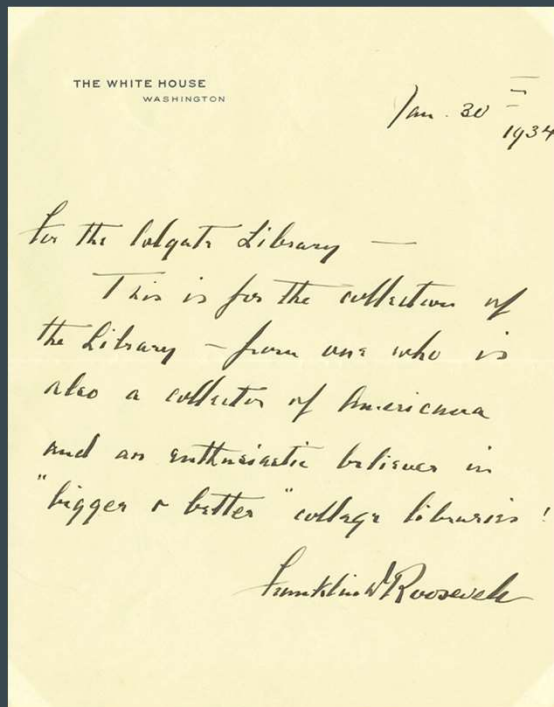 THE WHITE HOUSE
WASHINGTON
Jan. 30
1934
For the Colgate Library —
This is for the collection of
the Library – from one who is
also a collector of Americana
and an enthusiastic believer in
"bigger & better" college libraries!
Franklin D Roosevelt